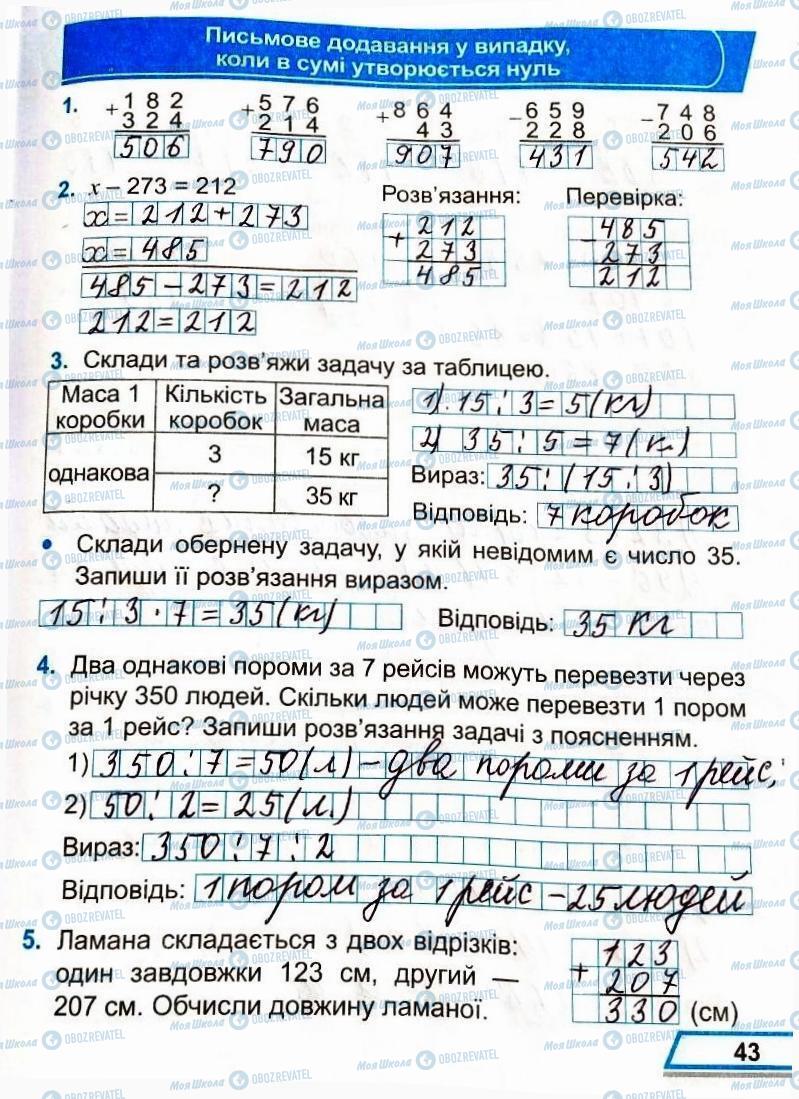 Письмове додавання у випадку,
коли в сумі утворюється нуль
1. +182 +576 +864 −659 −748
324 214 43 228 206
506 790 907 431 542
2. x − 273 = 212
x = 212 + 273
x = 485
485 − 273 = 212
212 = 212
Розв'язання:
+212
273
485
Перевірка:
−485
273
212
3. Склади та розв'яжи задачу за таблицею.
Маса 1 коробки Кількість коробок Загальна маса
однакова 3 15 кг
? 35 кг
1) 15 : 3 = 5 (кг)
2) 35 : 5 = 7 (к.)
Вираз: 35 : (15 : 3)
Відповідь: 7 коробок
• Склади обернену задачу, у якій невідомим є число 35.
Запиши її розв'язання виразом.
15 : 3 · 7 = 35 (кг) Відповідь: 35 кг
4. Два однакові пороми за 7 рейсів можуть перевезти через
річку 350 людей. Скільки людей може перевезти 1 пором
за 1 рейс? Запиши розв'язання задачі з поясненням.
1) 350 : 7 = 50 (л) – два пороми за 1 рейс,
2) 50 : 2 = 25 (л.)
Вираз: 350 : 7 : 2
Відповідь: 1 пором за 1 рейс – 25 людей
5. Ламана складається з двох відрізків:
один завдовжки 123 см, другий —
207 см. Обчисли довжину ламаної.
+123
207
330 (см)
43
Моя Школа OBOZREVATEL